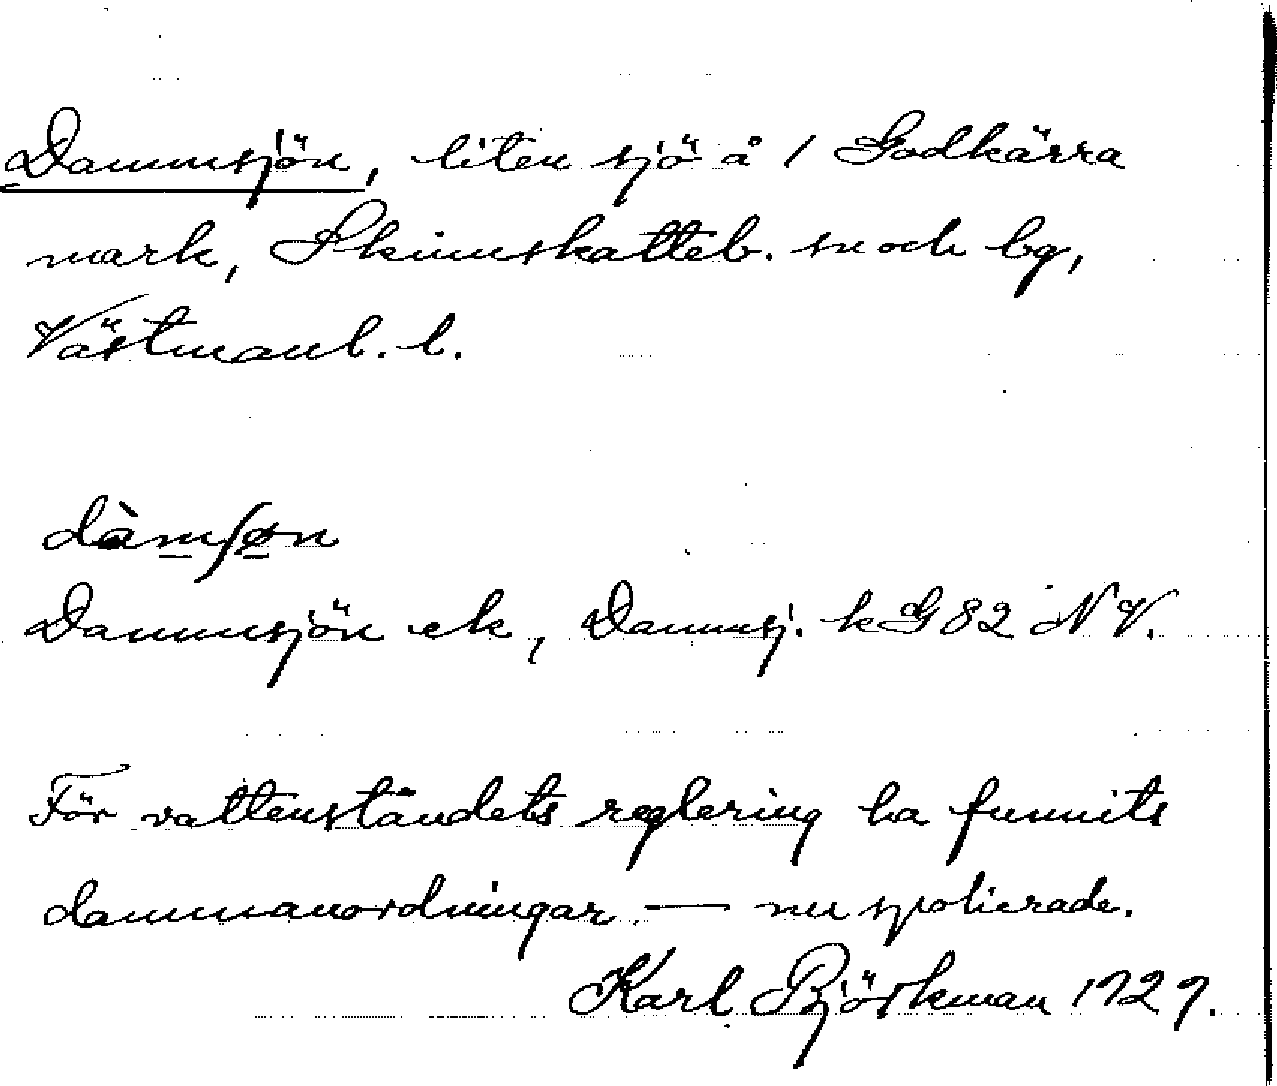 Dammsjön, liten sjö å / Godkärra
mark, Skinnskatteb. sn och bg,
Västmanl. l.
dàmʃøn
Dammsjön ek, Dammsj. k G 82 NV.
För vattenståndets reglering ha funnits
dammanordningar — nu spolierade.
Karl Björkman 1929.